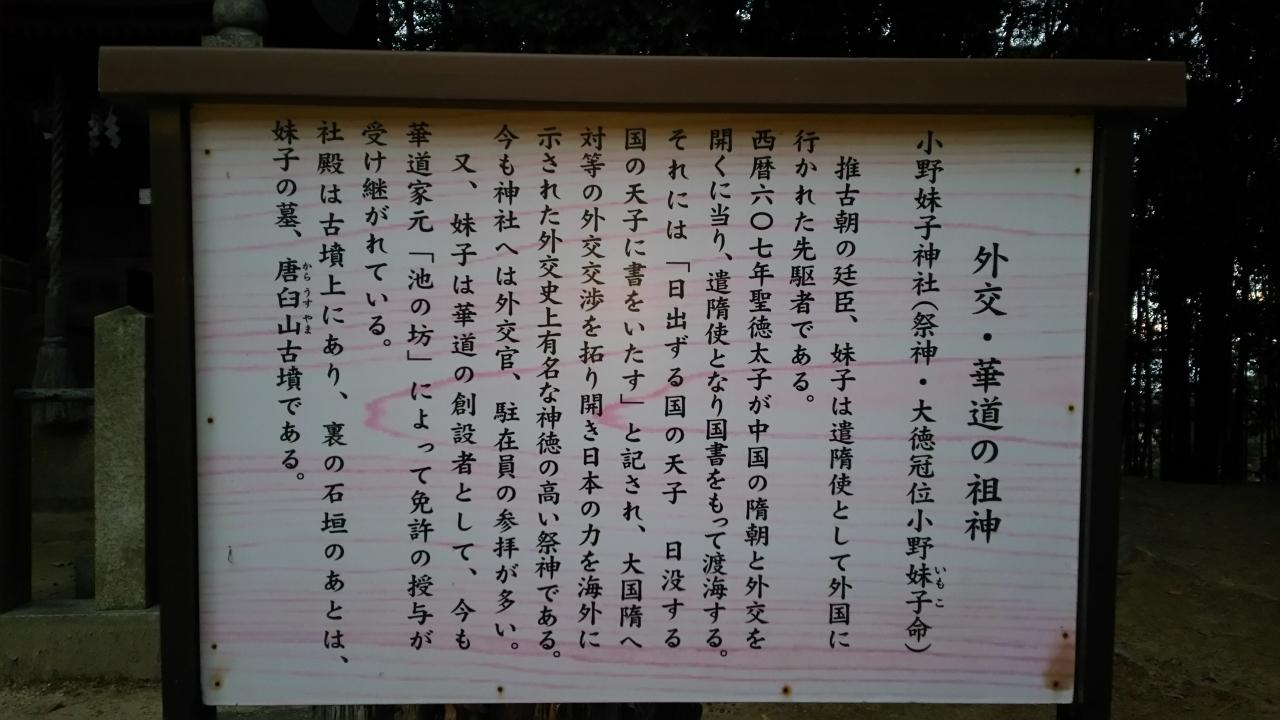 外交・華道の祖神
小野妹子神社(祭神・大徳冠位小野妹子命)
いもこ
推古朝の廷臣、妹子は遣隋使として外国に
行かれた先駆者である。
西暦六〇七年聖徳太子が中国の隋朝と外交を
開くに当り、遣隋使となり国書をもって渡海する。
それには「日出ずる国の天子 日没する
国の天子に書をいたす」と記され、大国隋へ
対等の外交交渉を拓り開き日本の力を海外に
示された外交史上有名な神徳の高い祭神である。
今も神社へは外交官、駐在員の参拝が多い。
又、妹子は華道の創設者として、今も
華道家元「池の坊」によって免許の授与が
受け継がれている。
社殿は古墳上にあり、裏の石垣のあとは、
妹子の墓、唐臼山古墳である。
からうすやま